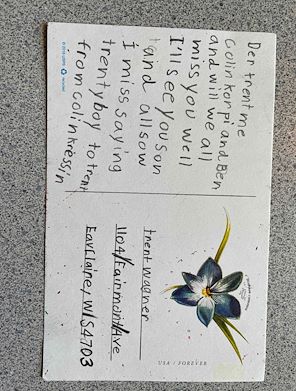 Der trent me
Colin korpi and Ben
and will we all
miss you well
I'll see you son
tand all sow
I miss saying
trenty boy to trent
from colin kressin
trent wagner
1104 Fairmont Ave
Eau Claire, WI 54703
USA / FOREVER